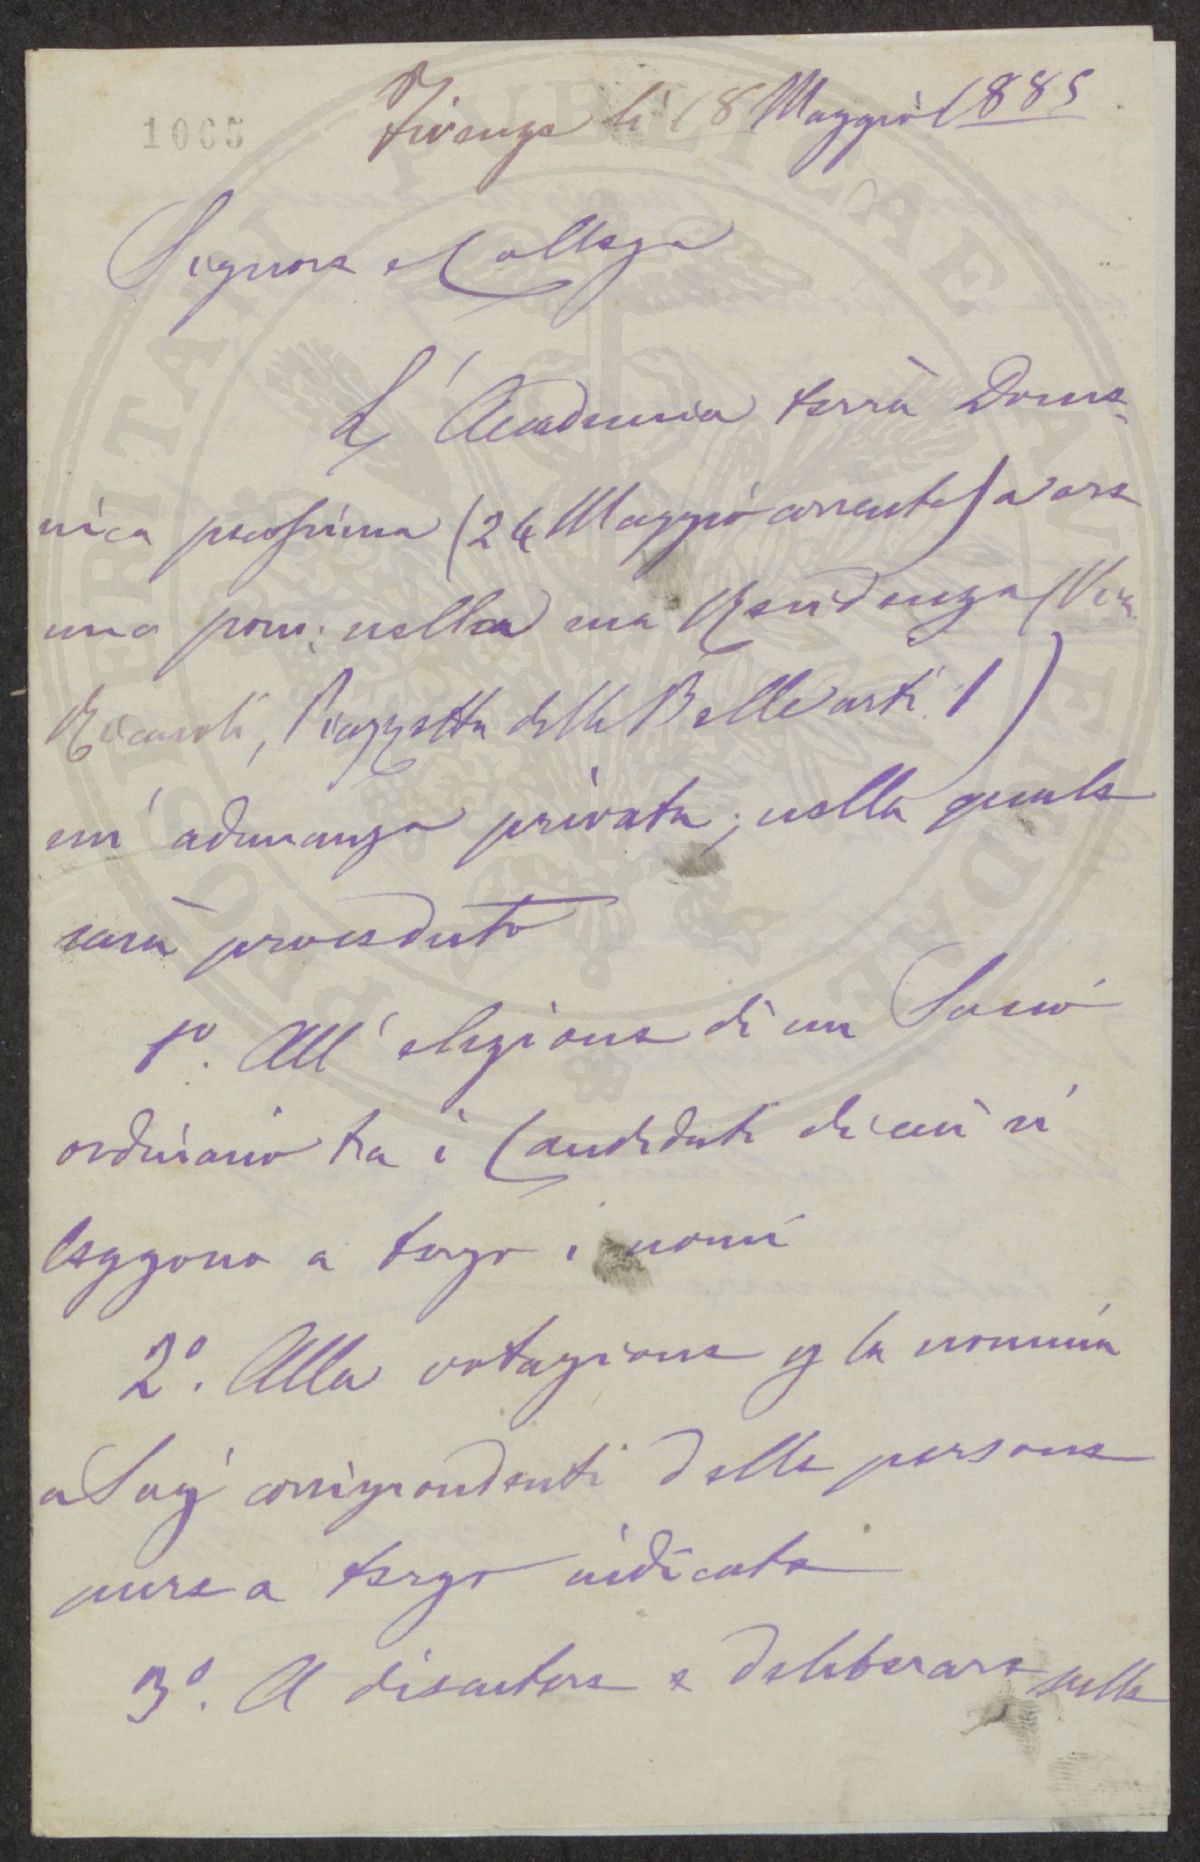 1065
Firenze li 18 Maggio 1885
Signore e Collega
L'Accademia terrà Dome-
nica prossima (24 Maggio corrente) a ore
una pom: nella sua Residenza (Via
Ricasoli, Piazzetta delle Belle arti 1)
un' adunanza privata; nella quale
sarà proceduto
1º. All' elezione di un Socio
ordinario tra i Candidati di cui si
leggono a tergo i nomi
2º. Alla votazione p la nomina
a Socj corrispondenti delle persone
pure a tergo indicate
3º. A discutere e deliberare sulle